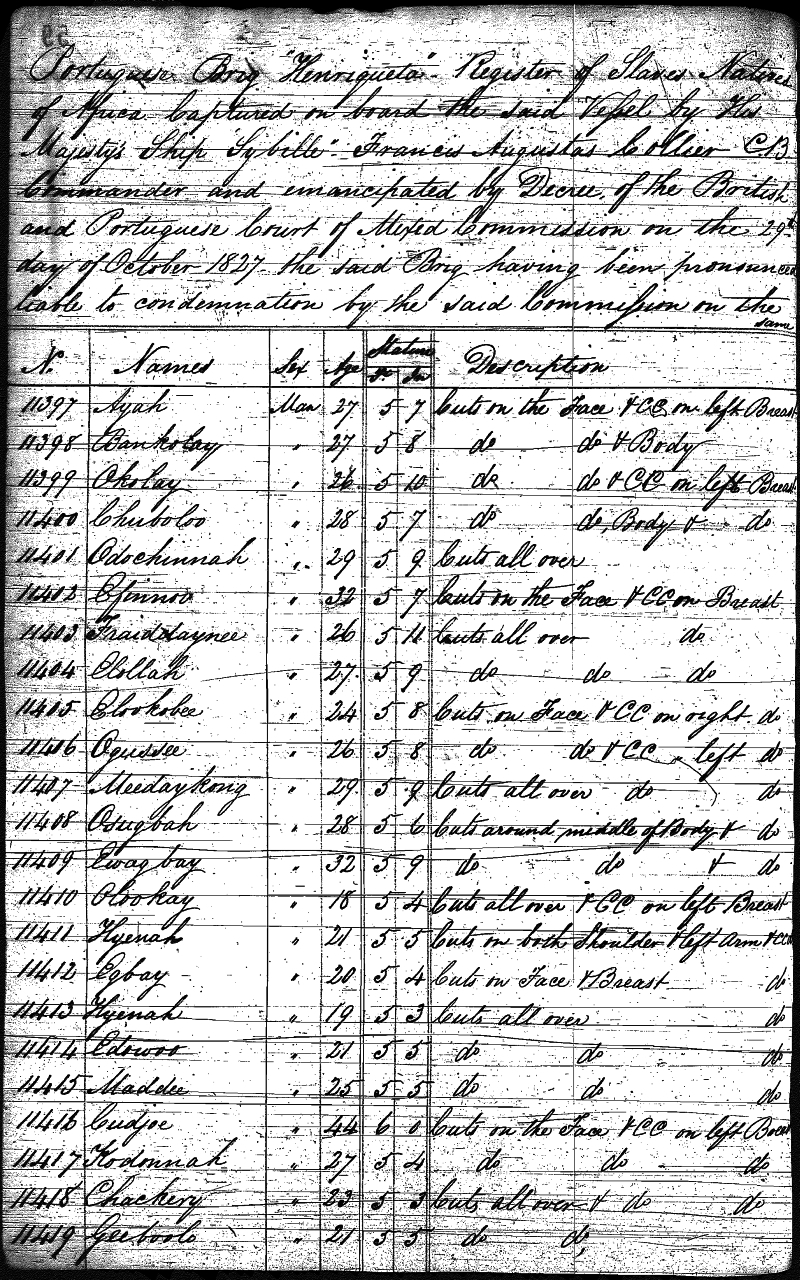 Portuguese Brig "Henriqueta" Register of Slaves Natives
of Africa Captured on board the said Vessel by His
Majesty's Ship "Sybille" Francis Augustus Collier C.B.
Commander and emancipated by Decree of the British
and Portuguese Court of Mixed Commission on the 29th
day of October 1827 the said Brig having been pronounced
liable to condemnation by the said Commission on the
same
No. Names Sex Age Stature Description
Ft In
11397 Ayah Man 27 5 7 Cuts on the Face & CC on left Breast
11398 Bankolay " 27 5 8 do do & Body
11399 Okolay " 26 5 10 do do & CC on left Breast
11400 Chuboloo " 28 5 7 do do, Body & do
11401 Odochinnah " 29 5 9 Cuts all over
11402 Efinnoo " 32 5 7 Cuts on the Face & CC on Breast
11403 Fraiddaynee " 26 5 11 Cuts all over do
11404 Elollah " 27 5 9 do do do
11405 Elookobee " 24 5 8 Cuts on Face & CC on right do
11406 Ogussee " 26 5 8 do do & CC " left do
11407 Meedaykong " 29 5 9 Cuts all over do do
11408 Osugbah " 28 5 6 Cuts around middle of Body & do
11409 Ewagbay " 32 5 9 do do & do
11410 Olookay " 18 5 4 Cuts all over & CC on left Breast
11411 Hyenah " 21 5 5 Cuts on both Shoulder & left Arm & CC
11412 Egbay " 20 5 4 Cuts on Face & Breast do
11413 Hyenah " 19 5 3 Cuts all over do
11414 Edowoo " 21 5 5 do do do
11415 Maddee " 25 5 5 do do do
11416 Cudjoe " 44 6 0 Cuts on the Face & CC on left Breast
11417 Kodonnah " 27 5 4 do do do
11418 Chackery " 23 5 3 Cuts all over & do do
11419 Geeboolo " 21 5 5 do do